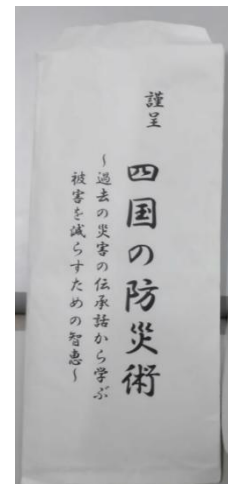 謹呈
四国の防災術
～過去の災害の伝承話から学ぶ
被害を減らすための智恵～